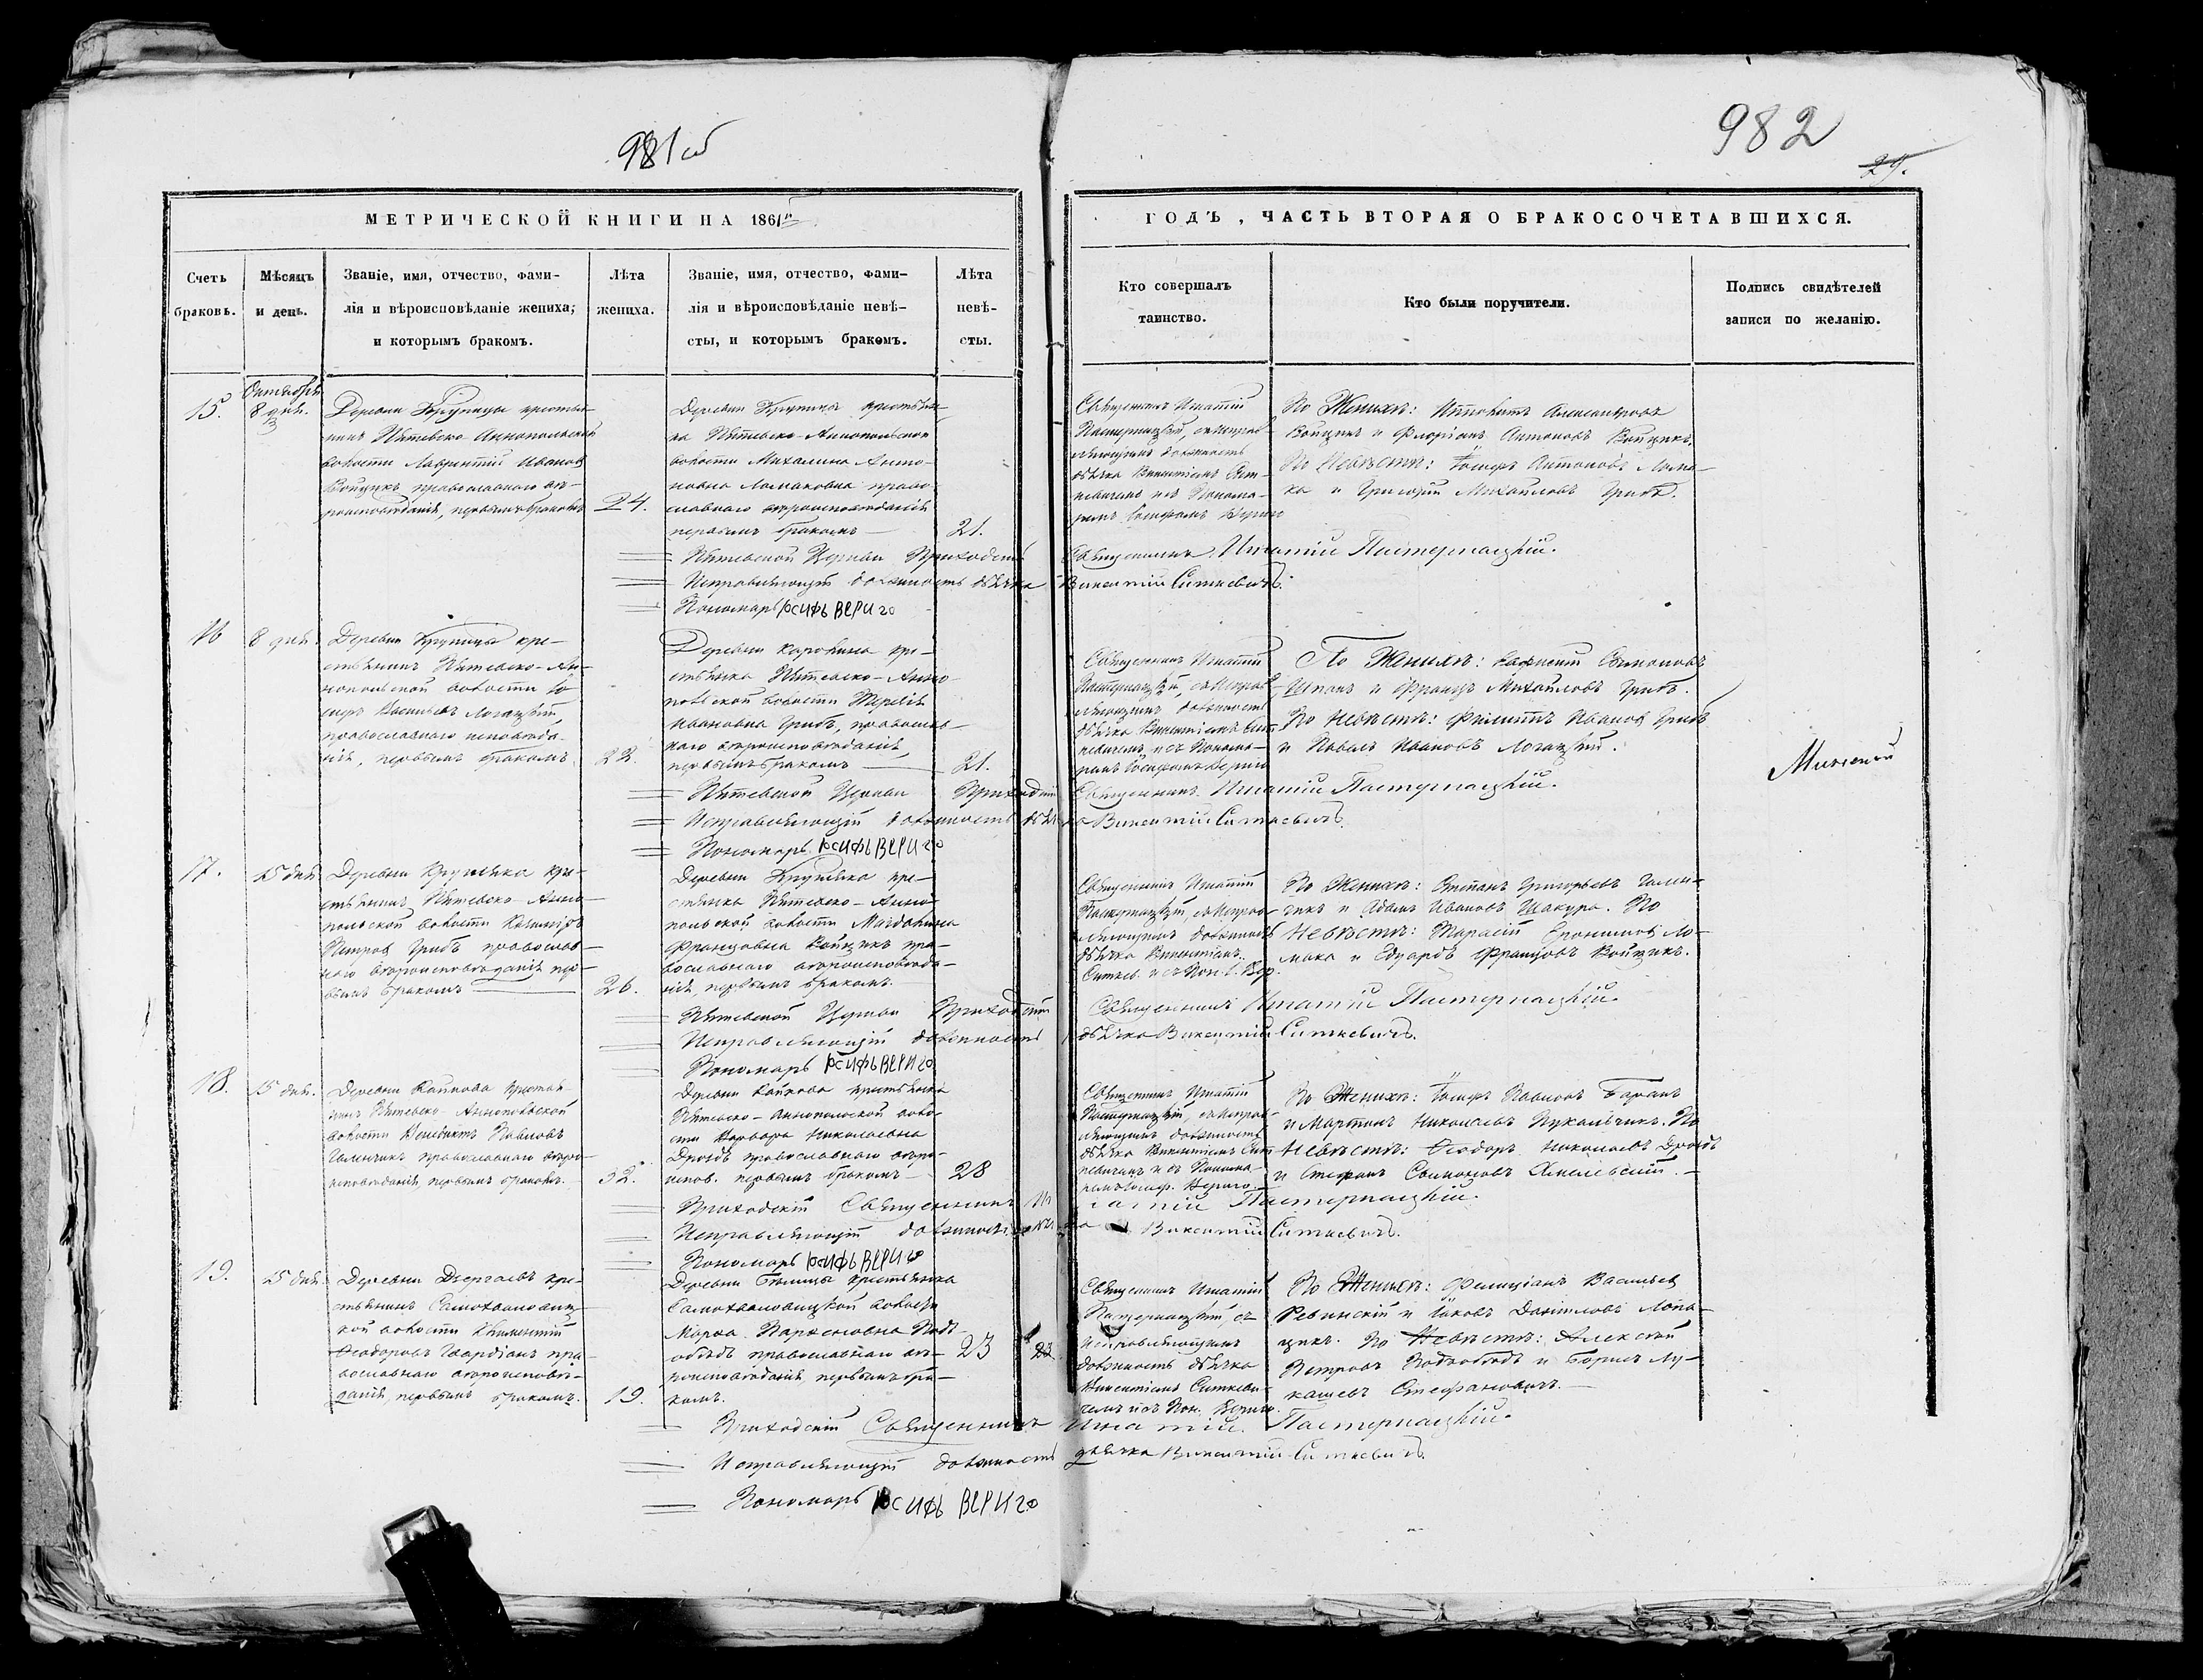 981 об
982
29.
МЕТРИЧЕСКОЙ КНИГИ НА 1861й
ГОДЪ, ЧАСТЬ ВТОРАЯ О БРАКОСОЧЕТАВШИХСЯ.
Счетъ
браковъ.
Мѣсяцъ
и день.
Званіе, имя, отчество, фами-
лія и вѣроисповѣданіе жениха;
и которымъ бракомъ.
Лѣта
жениха.
Званіе, имя, отчество, фами-
лія и вѣроисповѣданіе невѣ-
сты, и которымъ бракомъ.
Лѣта
невѣ-
сты.
Кто совершалъ
таинство.
Кто были поручители.
Подпись свидѣтелей
записи по желанію.
15.
Октября
8 дня.
Деревни Крупицы крестья-
нинъ Пятевско-Аннопольской
волости Лаврентій Ивановъ
Войцикъ православнаго вѣ-
роисповѣданія, первымъ бракомъ
24.
Деревни Крупицы крестьян-
ка Пятевско-Аннопольской
волости Михалина Анто-
новна Ломаковна право-
славнаго вѣроисповѣданія
первымъ бракомъ
21.
Священникъ Игнатій
Пастернацкій, съ Исправ-
ляющимъ должность
дьячка Викентіемъ Сит-
кевичемъ и съ Понома-
ремъ Іосифомъ Вериго
По Женихѣ: Ипполитъ Александровъ
Войцикъ и Флоріанъ Антоновъ Войцикъ.
По Невѣстѣ: Іосифъ Антоновъ Лома-
ка и Григорій Михайловъ Грибъ.
Пятевской Церкви Приходскій Священникъ Игнатій Пастернацкій.
Исправляющій должность дьячка Викентій Ситкевичъ.
Пономарь Іосифъ Вериго
16
8 дня.
Деревни Крупицы кре-
стьянинъ Пятевско-Ан-
нопольской волости Іо-
сифъ Васильевъ Логацкій,
православнаго исповѣда-
нія, первымъ бракомъ
22.
Деревни Каролина кре-
стьянка Пятевско-Анно-
польской волости
Ивановна Грибъ, православ-
наго вѣроисповѣданія,
первымъ бракомъ
21.
Священникъ Игнатій
Пастернацкій, съ Исправ-
ляющимъ должность
дьячка Викентіемъ Сит-
кевичемъ и съ Понома-
ремъ Іосифомъ Вериго
По Женихѣ: Симоновъ
и Францъ Михайловъ Грибъ.
По Невѣстѣ: Филиппъ Ивановъ Грибъ
и Павелъ Ивановъ Логацкій.
Пятевской Церкви Приходскій Священникъ Игнатій Пастернацкій.
Исправляющій должность дьячка Викентій Ситкевичъ.
Пономарь Іосифъ Вериго
17.
15 дня
Деревни Крупника кре-
стьянинъ Пятевско-Анно-
польской волости Казиміръ
Петровъ Грибъ православ-
наго вѣроисповѣданія пер-
вымъ бракомъ
26.
Деревни Крупника кре-
стьянка Пятевско-Анно-
польской волости Магдалина
Францовна Войцикъ пра-
вославнаго вѣроисповѣда-
нія, первымъ бракомъ.
Священникъ Игнатій
Пастернацкій, съ Исправ-
ляющимъ должность
дьячка Викентіемъ
Ситкев. и съ Пон. І. Вер.
По Женихѣ: Степанъ Григорьевъ Гален-
чикъ и Адамъ Ивановъ Шакура. По
Невѣстѣ: Тарасій Ло-
мака и Едуардъ Францовъ Войцикъ.
Пятевской Церкви Приходскій Священникъ Игнатій Пастернацкій.
Исправляющій должность дьячка Викентій Ситкевичъ.
Пономарь Іосифъ Вериго
18.
15 дня.
Деревни Кайкова крестья-
нинъ Пятевско-Аннопольской
волости Венедиктъ Павловъ
Галенчикъ православнаго вѣро-
исповѣданія, первымъ бракомъ.
32.
Деревни Кайкова крестьянка
Пятевско-Аннопольской воло-
сти Варвара Николаевна
Дроздъ православнаго вѣро-
испов. первымъ бракомъ
28
Священникъ Игнатій
Пастернацкій, съ Исправ-
ляющимъ должность
дьячка Викентіемъ Сит-
кевичемъ и съ Понома-
ремъ Іосиф. Вериго.
По Женихѣ: Іосифъ Павловъ Баранъ
и Мартинъ Николаевъ Пукальчикъ. По
Невѣстѣ: Ѳеодоръ Николаевъ Дроздъ
и Стефанъ Симоновъ Хмелевскій.
Приходскій Священникъ Игнатій Пастернацкій.
Исправляющій должность дьячка Викентій Ситкевичъ.
Пономарь Іосифъ Вериго
19.
15 дня.
Деревни Дергаевъ кре-
стьянинъ Самохваловиц-
кой волости Климентій
Ѳеодоровъ Гвардіанъ пра-
вославнаго вѣроисповѣ-
данія, первымъ бракомъ.
19.
Деревни Бѣлицы крестьянка
Самохваловицкой волости
Марѳа Парѳеновна Под-
обѣдъ православнаго вѣ-
роисповѣданія, первымъ бра-
комъ.
23
23
Священникъ Игнатій
Пастернацкій, съ
Исправляющимъ
должность дьячка
Викентіемъ Ситкеви-
чемъ и съ Пон. Вериго.
По Женихѣ: Фелиціанъ Васильевъ
Ревинскій и Іаковъ Даниловъ Лопа-
цикъ. По Невѣстѣ: Алексѣй
Петровъ Подобѣдъ и Борисъ Лу-
кашевъ Стефановичъ.
Приходскій Священникъ Игнатій Пастернацкій.
Исправляющій должность дьячка Викентій Ситкевичъ.
Пономарь Іосифъ Вериго